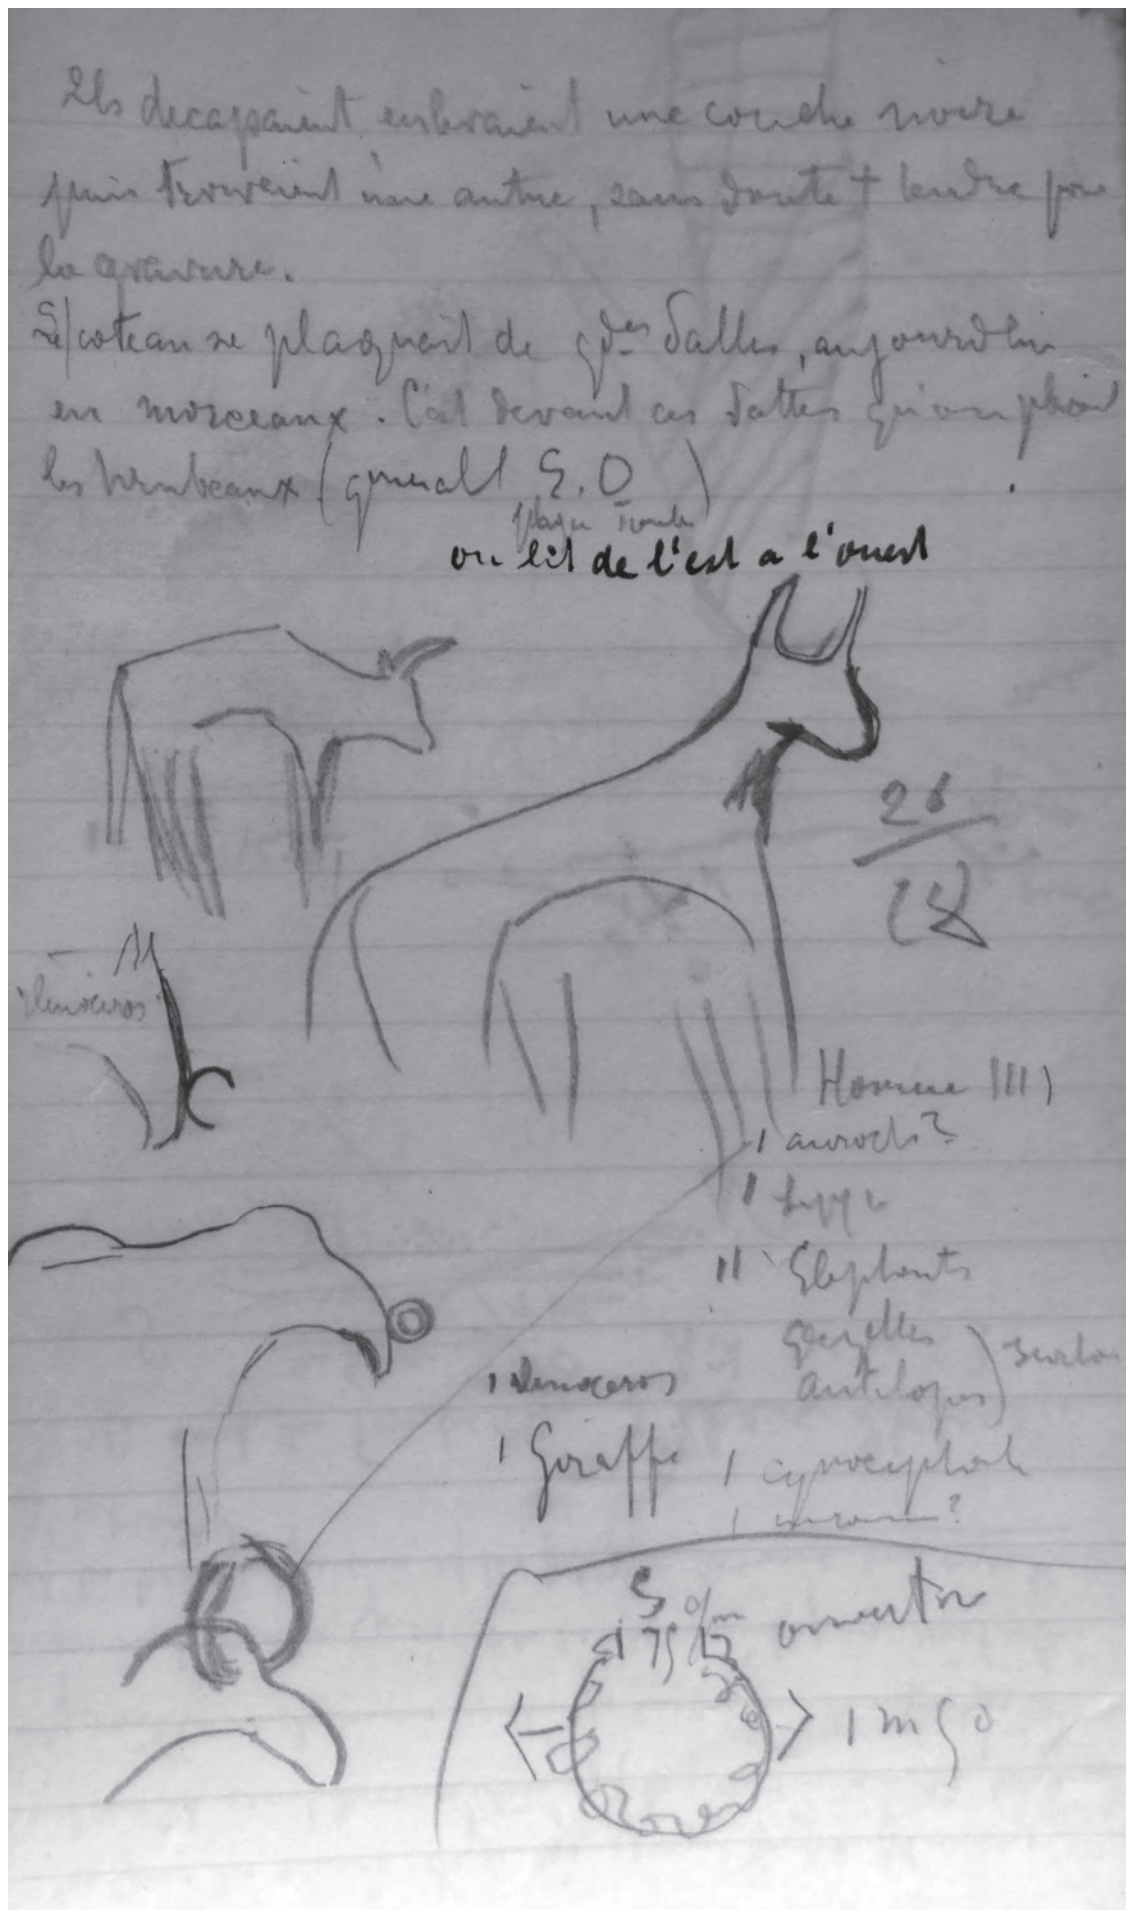 Ils decapaient enlevaient une couche noire
puis trouvaient une autre, sans doute + tendre pour
la gravure.
coteau se plaquait de gdes dalles, aujourdhui
en morceaux. C'est devant ces dalles qu'on
les tombeaux (generalt E.O)
ou lit de l'est a l'ouest
26
Rhinoceros
Homme IIII
I aurochs?
II
II Elephants
gazelles
antilopes)
I Rhinoceros
I Giraffe
I cynocephale
I ?
S
ouverture
1 m 50